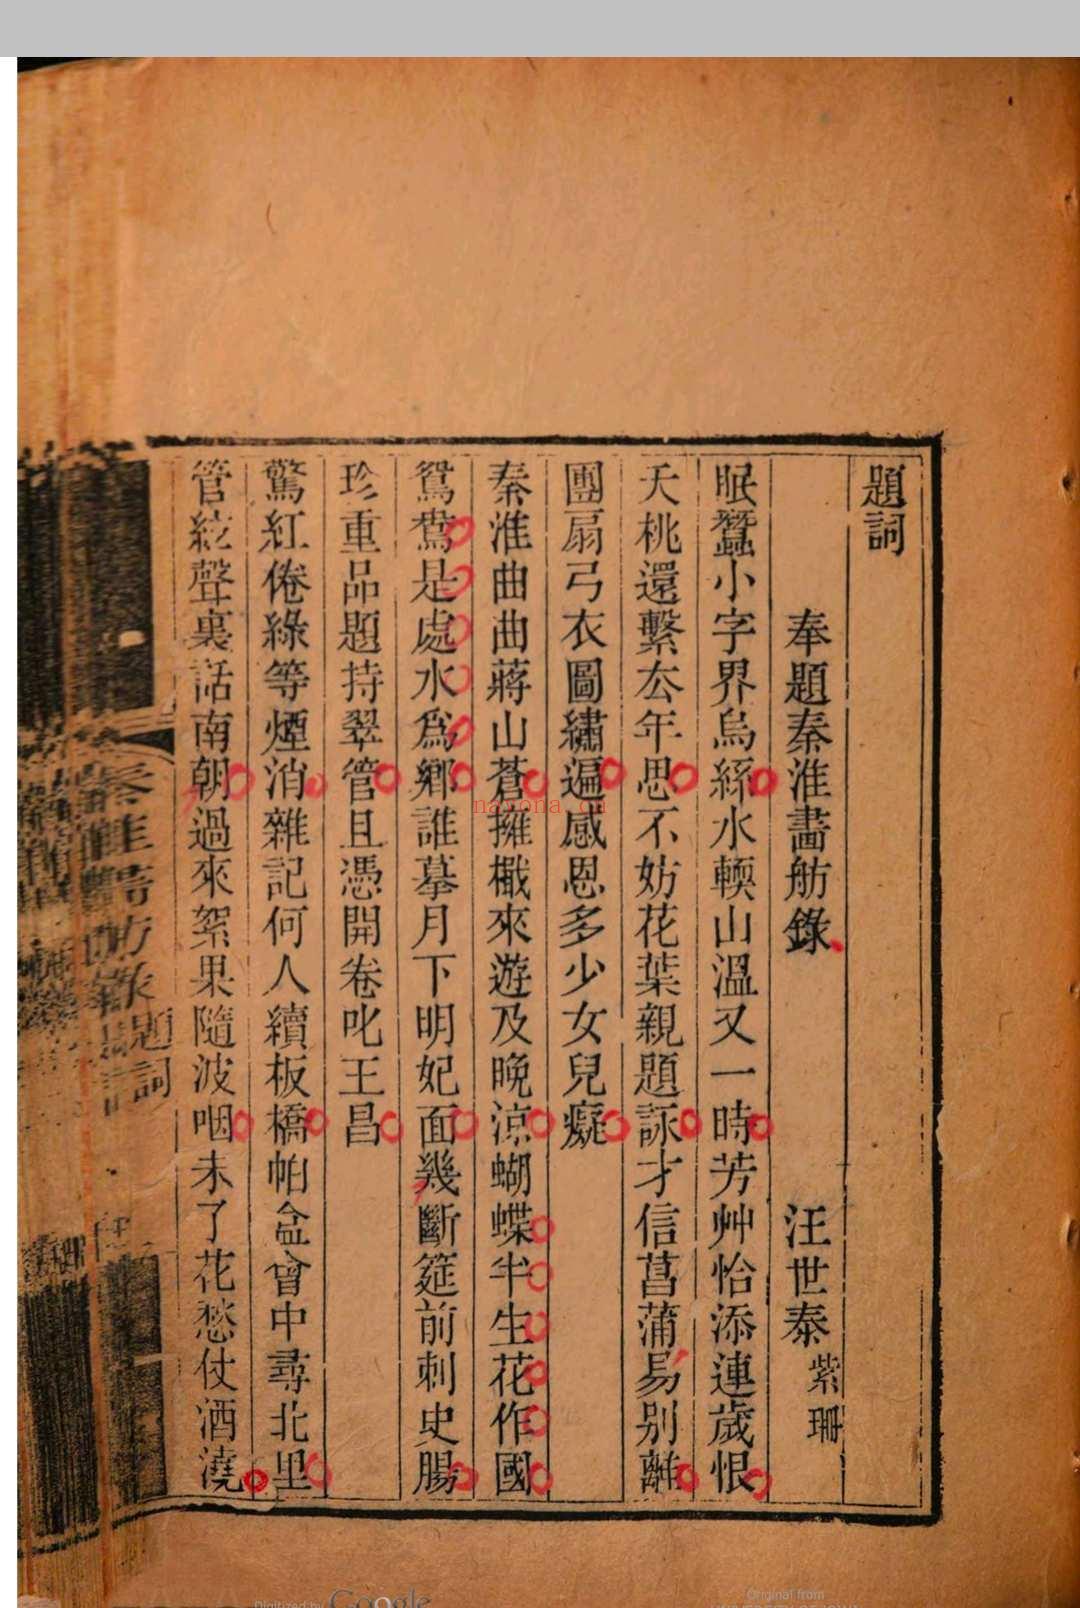 題詞
奉題秦淮畫舫錄 汪世泰 紫珊
眠蠶小字界烏絲水輭山溫又一時芳艸恰添連歲恨
夭桃還繫厺年思不妨花葉親題詠才信菖蒲易别離
團扇弓衣圖繡遍感恩多少女兒癡
秦淮曲曲蔣山蒼擁檝來遊及晚涼蝴蝶半生花作國
鴛鴦是處水爲鄉誰摹月下明妃面幾斷筵前刺史腸
珍重品題持翠管且憑開卷叱王昌
驚紅倦綠等煙消雜記何人續板橋帕盒會中尋北里
管絃聲裏話南朝過來絮果隨波咽未了花愁仗酒澆
秦淮畫舫錄 題詞
nayona.cn
Digitized by Google
Original from